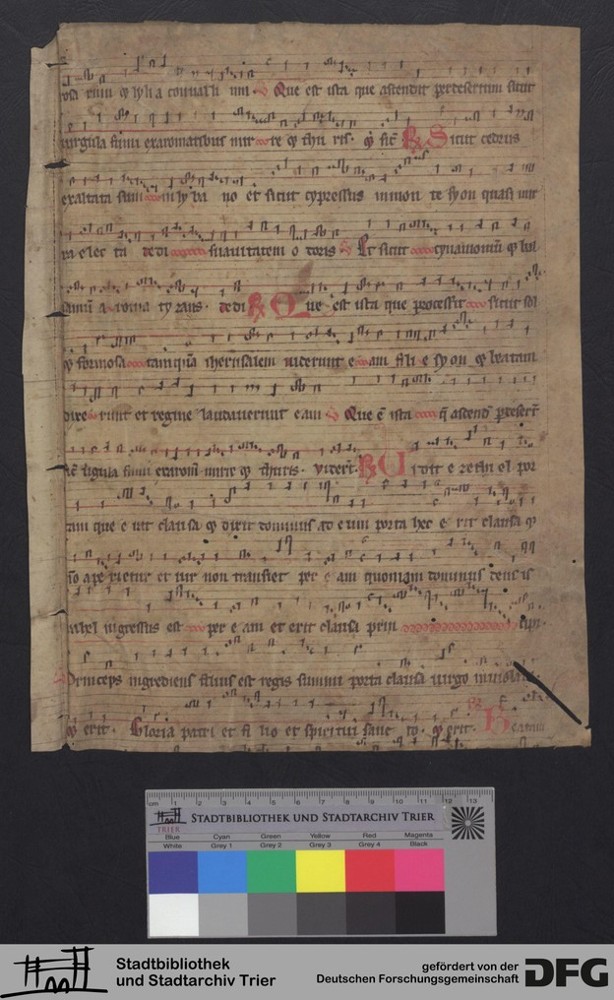 rosa rum & lylia conuallium ℣ Que est ista que ascendit per desertum sicut
uirgula fumi ex aromatibus mirre & thuris. & sic̄ ℟ Sicut cedrus
exaltata sum in lybano et sicut cypressus in monte syon quasi mir
ra electa dedi suauitatem odoris ℣ Et sicut cynamomū & bal
samū aromatyzans. dedi ℟ Que est ista que processit sicut sol
& formosa tamquā iherusalem uiderunt eam filie syon & beatam
dixerunt et regine laudauerunt eam ℣ Que ē ista q̄ ascend per desert
sic̄ uirgula fumi ex arom mirre & thuris. viderūt. ℟ Vidit ezechiel por
tam que erit clausa & dixit dominus ad eum porta hec erit clausa &
nō aperietur et uir non transiet per eam quoniam dominus deus is
rahel ingressus est per eam et erit clausa prin cipi.
℣ Princeps ingrediens filius est regis summi porta clausa uirgo inuiolata
& erit. Gloria patri et filio et spiritui sancto. & erit. ℟ Beatam
cm 1 2 3 4 5 6 7 8 9 10 11 12 13
TRIER
STADTBIBLIOTHEK UND STADTARCHIV TRIER
Blue Cyan Green Yellow Red Magenta
White Grey 1 Grey 2 Grey 3 Grey 4 Black
Stadtbibliothek
und Stadtarchiv Trier
gefördert von der
Deutschen Forschungsgemeinschaft
DFG